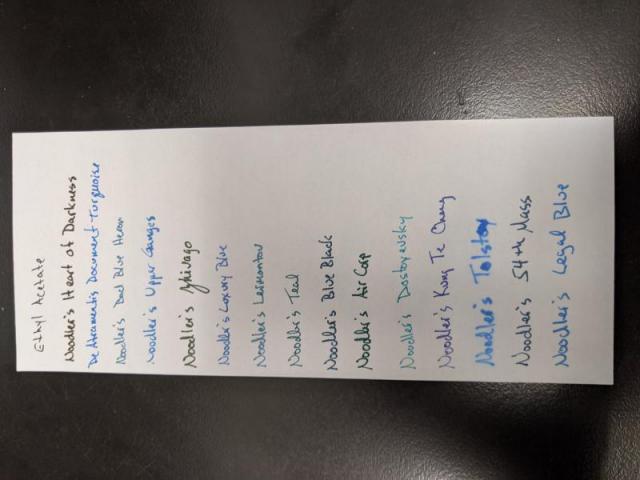 Ethyl Acetate
Noodler's Heart of Darkness
De Atramentis Document Turquoise
Noodler's Bad Blue Heron
Noodler's Upper Ganges
Noodler's Zhivago
Noodler's Luxury Blue
Noodler's Lermontov
Noodler's Teal
Noodler's Blue Black
Noodler's Air Corp
Noodler's Dostoyevsky
Noodler's Kung Te Cheng
Noodler's Tolstoy
Noodler's 54th Mass
Noodler's Legal Blue